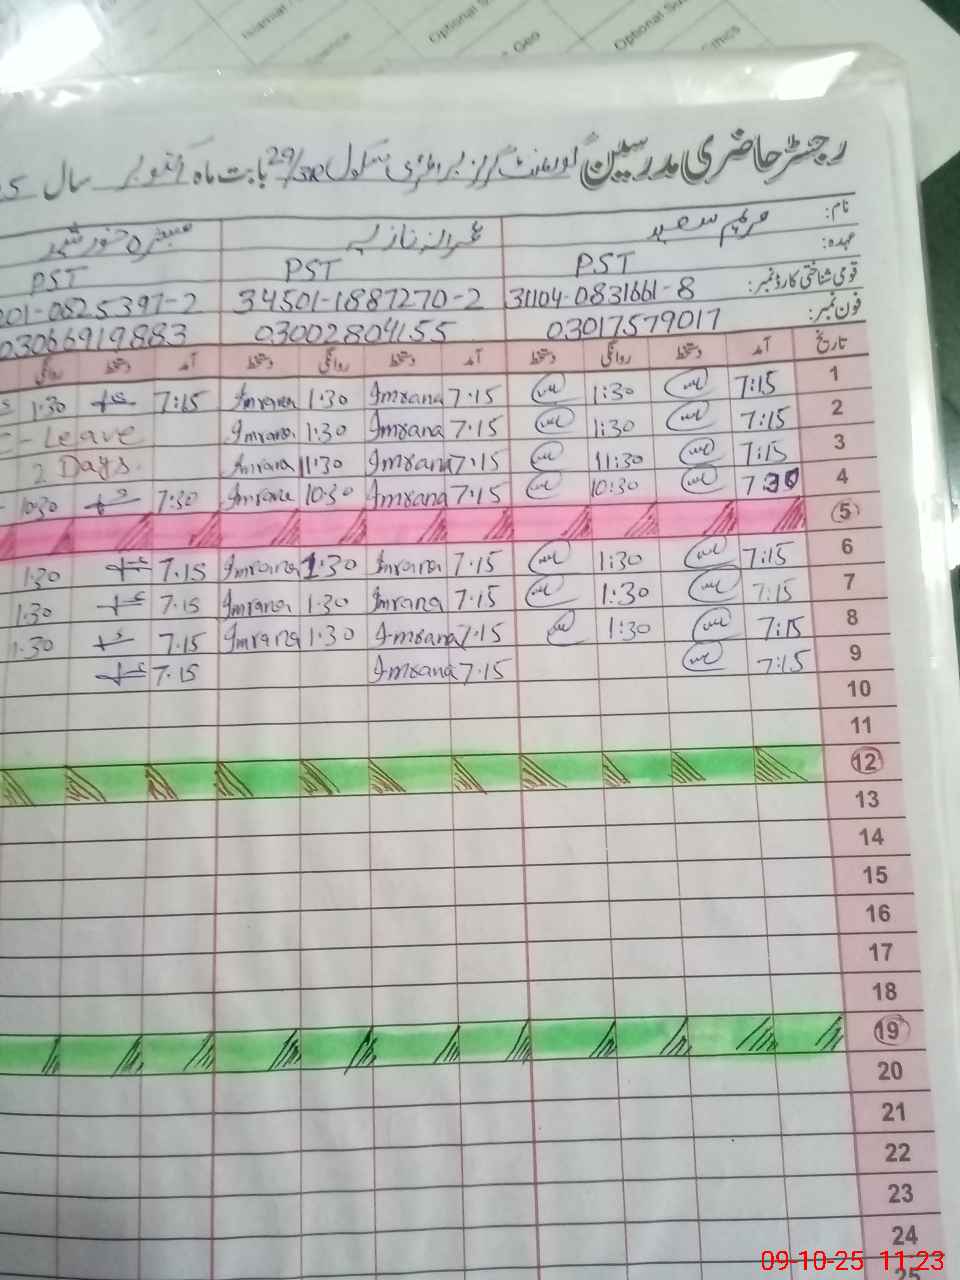 Islamiat /
Optional S
Optional Su
Geo
رجسٹر حاضری مدرسین گورنمنٹ گرلز پرائمری سکول 29/3R بابت ماہ اکتوبر سال
نام: مریم سعید عمرانہ نازلی
عہدہ: PST PST PST
قومی شناختی کارڈ نمبر: 31104-0831661-8 34501-1887270-2 01-0825397-2
فون نمبر: 03017579017 03002804155 03066919883
تاریخ آمد دستخط روانگی دستخط آمد دستخط روانگی دستخط آمد دستخط روانگی
1 7:15 1:30 7.15 Imrana 1.30 Imrana 7:15 1.30
2 7:15 1:30 7.15 Imrana 1.30 Imrana - Leave
3 7:15 11:30 7.15 Imrana 11.30 Imrana 2 Days.
4 7:30 10:30 7.15 Imrana 10.30 Imrana 7:30 10:30
5
6 7:15 1:30 7.15 Imrana 1.30 Imrana 7.15 1.30
7 7:15 1:30 7.15 Imrana 1.30 Imrana 7.15 1.30
8 7:15 1:30 7.15 Imrana 1.30 Imrana 7.15 1.30
9 7:15 7.15 Imrana 7.15
10
11
12
13
14
15
16
17
18
19
20
21
22
23
24
25
09-10-25 11:23